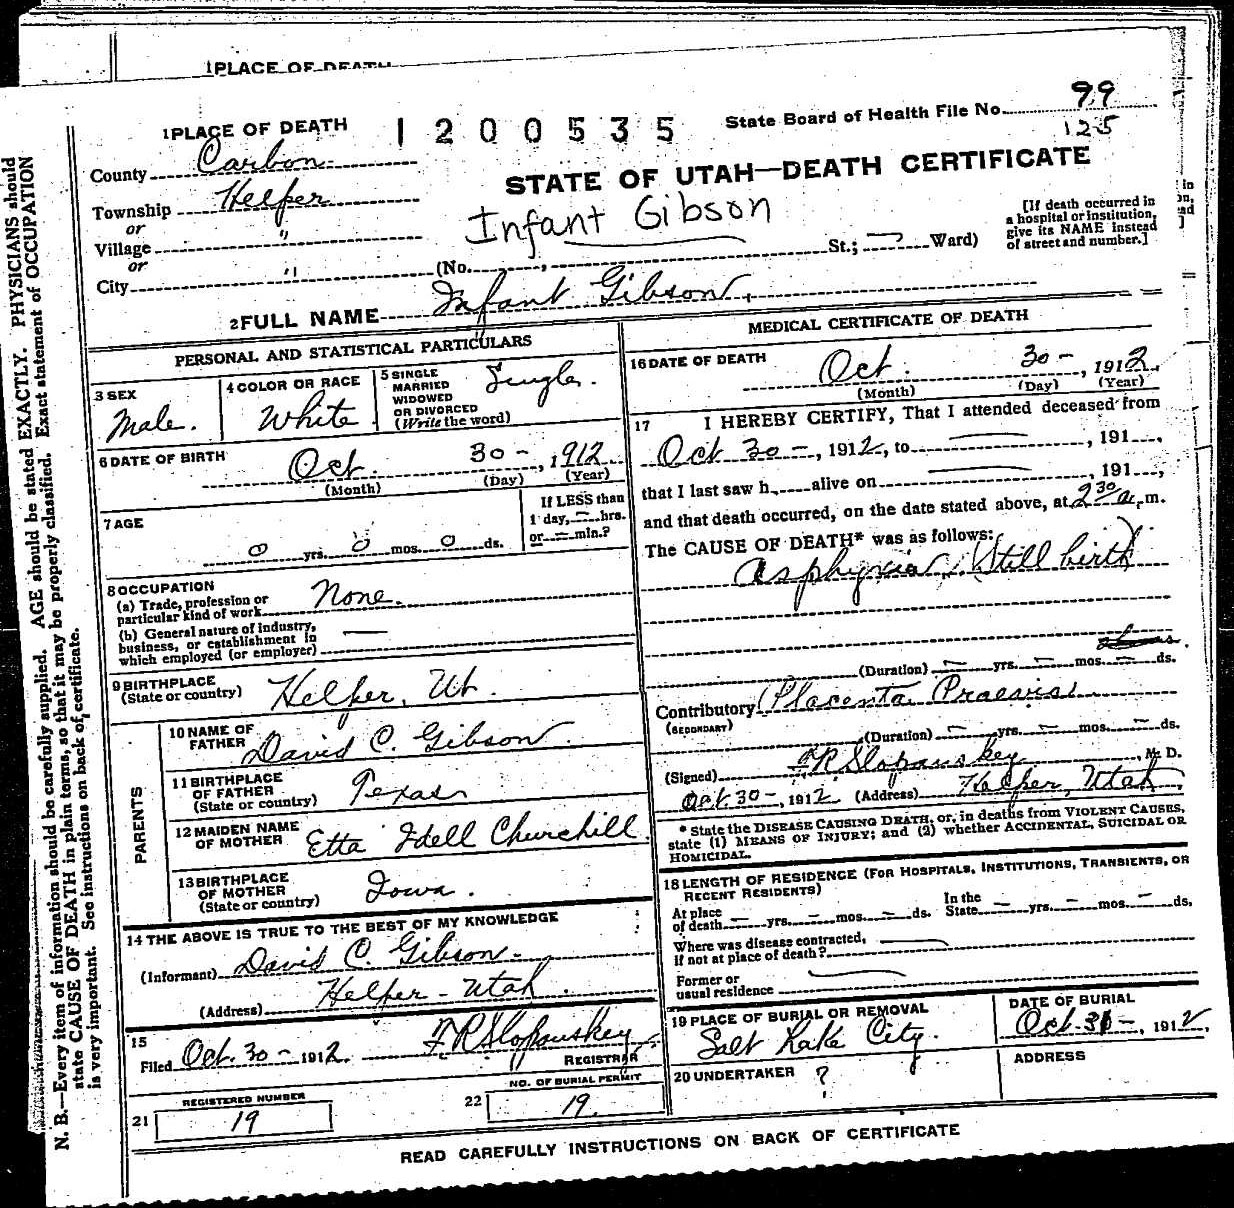 1 PLACE OF DEATH
1 PLACE OF DEATH
1200535
State Board of Health File No. 99
125
County Carbon
Township Helper
or
Village "
or
City "
STATE OF UTAH—DEATH CERTIFICATE
Infant Gibson
(No. St.; Ward)
[If death occurred in
a hospital or institution,
give its NAME instead
of street and number.]
2 FULL NAME Infant Gibson.
PERSONAL AND STATISTICAL PARTICULARS
3 SEX
Male.
4 COLOR OR RACE
White
5 SINGLE
MARRIED
WIDOWED
OR DIVORCED
(Write the word)
Single.
6 DATE OF BIRTH
Oct. 30 - , 1912
(Month) (Day) (Year)
7 AGE
0 yrs. 0 mos. 0 ds.
If LESS than
1 day, — hrs.
or — min.?
8 OCCUPATION
(a) Trade, profession or
particular kind of work
None.
(b) General nature of industry,
business, or establishment in
which employed (or employer) —
9 BIRTHPLACE
(State or country) Helper, Ut.
PARENTS
10 NAME OF
FATHER David C. Gibson.
11 BIRTHPLACE
OF FATHER
(State or country) Texas
12 MAIDEN NAME
OF MOTHER Etta Idell Churchill
13 BIRTHPLACE
OF MOTHER
(State or country) Iowa.
14 THE ABOVE IS TRUE TO THE BEST OF MY KNOWLEDGE
(Informant) David C. Gibson -
(Address) Helper - Utah.
15
Filed Oct. 30 - 1912. F R Slopanskey
REGISTRAR
21 REGISTERED NUMBER
19
22 NO. OF BURIAL PERMIT
19.
MEDICAL CERTIFICATE OF DEATH
16 DATE OF DEATH
Oct. 30 - , 1912.
(Month) (Day) (Year)
17 I HEREBY CERTIFY, That I attended deceased from
Oct 30 - , 1912, to — , 191 ,
that I last saw h alive on — , 191 ,
and that death occurred, on the date stated above, at 2 30 a. m.
The CAUSE OF DEATH* was as follows:
Asphyxia (Still birth)
(Duration) — yrs. — mos. — ds.
Contributory Placenta Praevia
(SECONDARY)
(Duration) — yrs. — mos. — ds.
(Signed) F R Slopanskey, M. D.
Oct. 30 - , 1912 (Address) Helper, Utah
* State the DISEASE CAUSING DEATH, or, in deaths from VIOLENT CAUSES,
state (1) MEANS OF INJURY; and (2) whether ACCIDENTAL, SUICIDAL OR
HOMICIDAL.
18 LENGTH OF RESIDENCE (FOR HOSPITALS, INSTITUTIONS, TRANSIENTS, OR
RECENT RESIDENTS)
At place
of death — yrs. — mos. — ds. In the
State — yrs. — mos. — ds.
Where was disease contracted,
if not at place of death? —
Former or
usual residence —
19 PLACE OF BURIAL OR REMOVAL
Salt Lake City.
DATE OF BURIAL
Oct. 31 - , 1912,
20 UNDERTAKER ?
ADDRESS
READ CAREFULLY INSTRUCTIONS ON BACK OF CERTIFICATE
N. B.—Every item of information should be carefully supplied. AGE should be stated EXACTLY. PHYSICIANS should
state CAUSE OF DEATH in plain terms, so that it may be properly classified. Exact statement of OCCUPATION
is very important. See instructions on back of certificate.